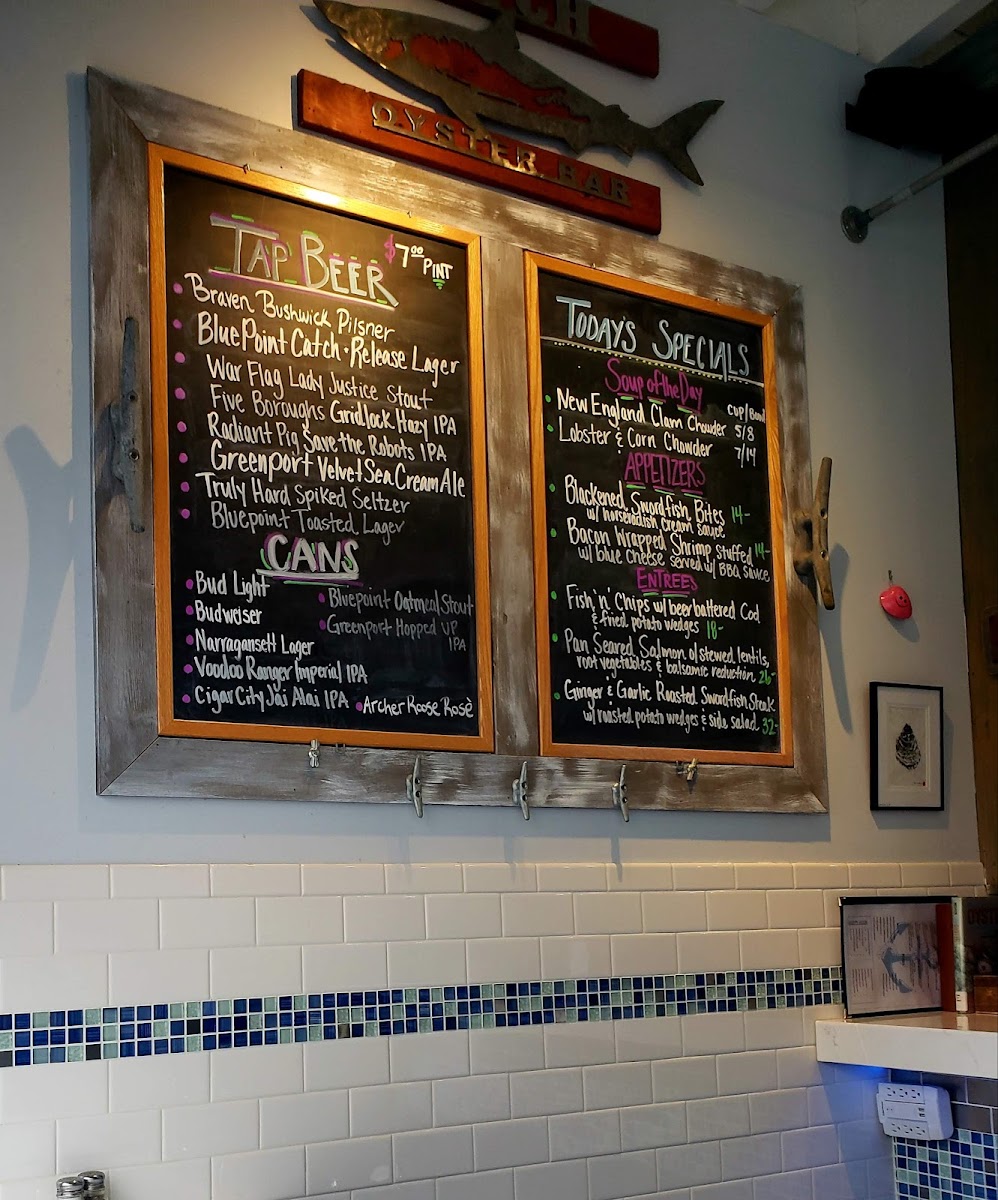 CH
OYSTER BAR
TAP BEER $7.00 PINT
Braven Bushwick Pilsner
BluePoint Catch • Release Lager
War Flag Lady Justice Stout
Five Boroughs Gridlock Hazy IPA
Radiant Pig Save the Robots IPA
Greenport Velvet Sea Cream Ale
Truly Hard Spiked Seltzer
Bluepoint Toasted Lager
CANS
Bud Light
Budweiser
Narragansett Lager
Voodoo Ranger Imperial IPA
Cigar City Jai Alai IPA
Bluepoint Oatmeal Stout
Greenport Hopped UP
IPA
Archer Roose Rosè
TODAY'S SPECIALS
Soup of the Day
CUP/Bowl
New England Clam Chowder 5/8
Lobster & Corn Chowder 7/14
APPETIZERS
Blackened Swordfish Bites 14-
w/ horseradish cream sauce
Bacon Wrapped Shrimp stuffed 14-
w/ blue cheese served w/ BBQ sauce
ENTREES
Fish 'n' Chips w/ beer battered Cod
& fried potato wedges 18-
Pan Seared Salmon o/ stewed lentils,
root vegetables & balsamic reduction 26-
Ginger & Garlic Roasted Swordfish Steak
w/ roasted potato wedges & side salad 32-